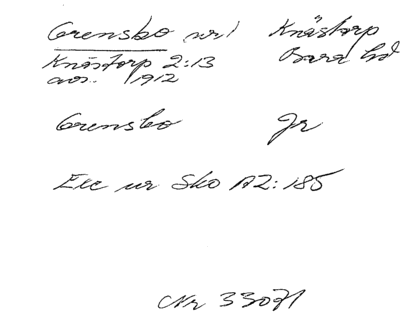 Grensbo nr 1 Knästorp
Knästorp 2:13 Bara hd
avs. 1912
Grensbo Jr
Exc ur Sko A2:185
Nr 33071